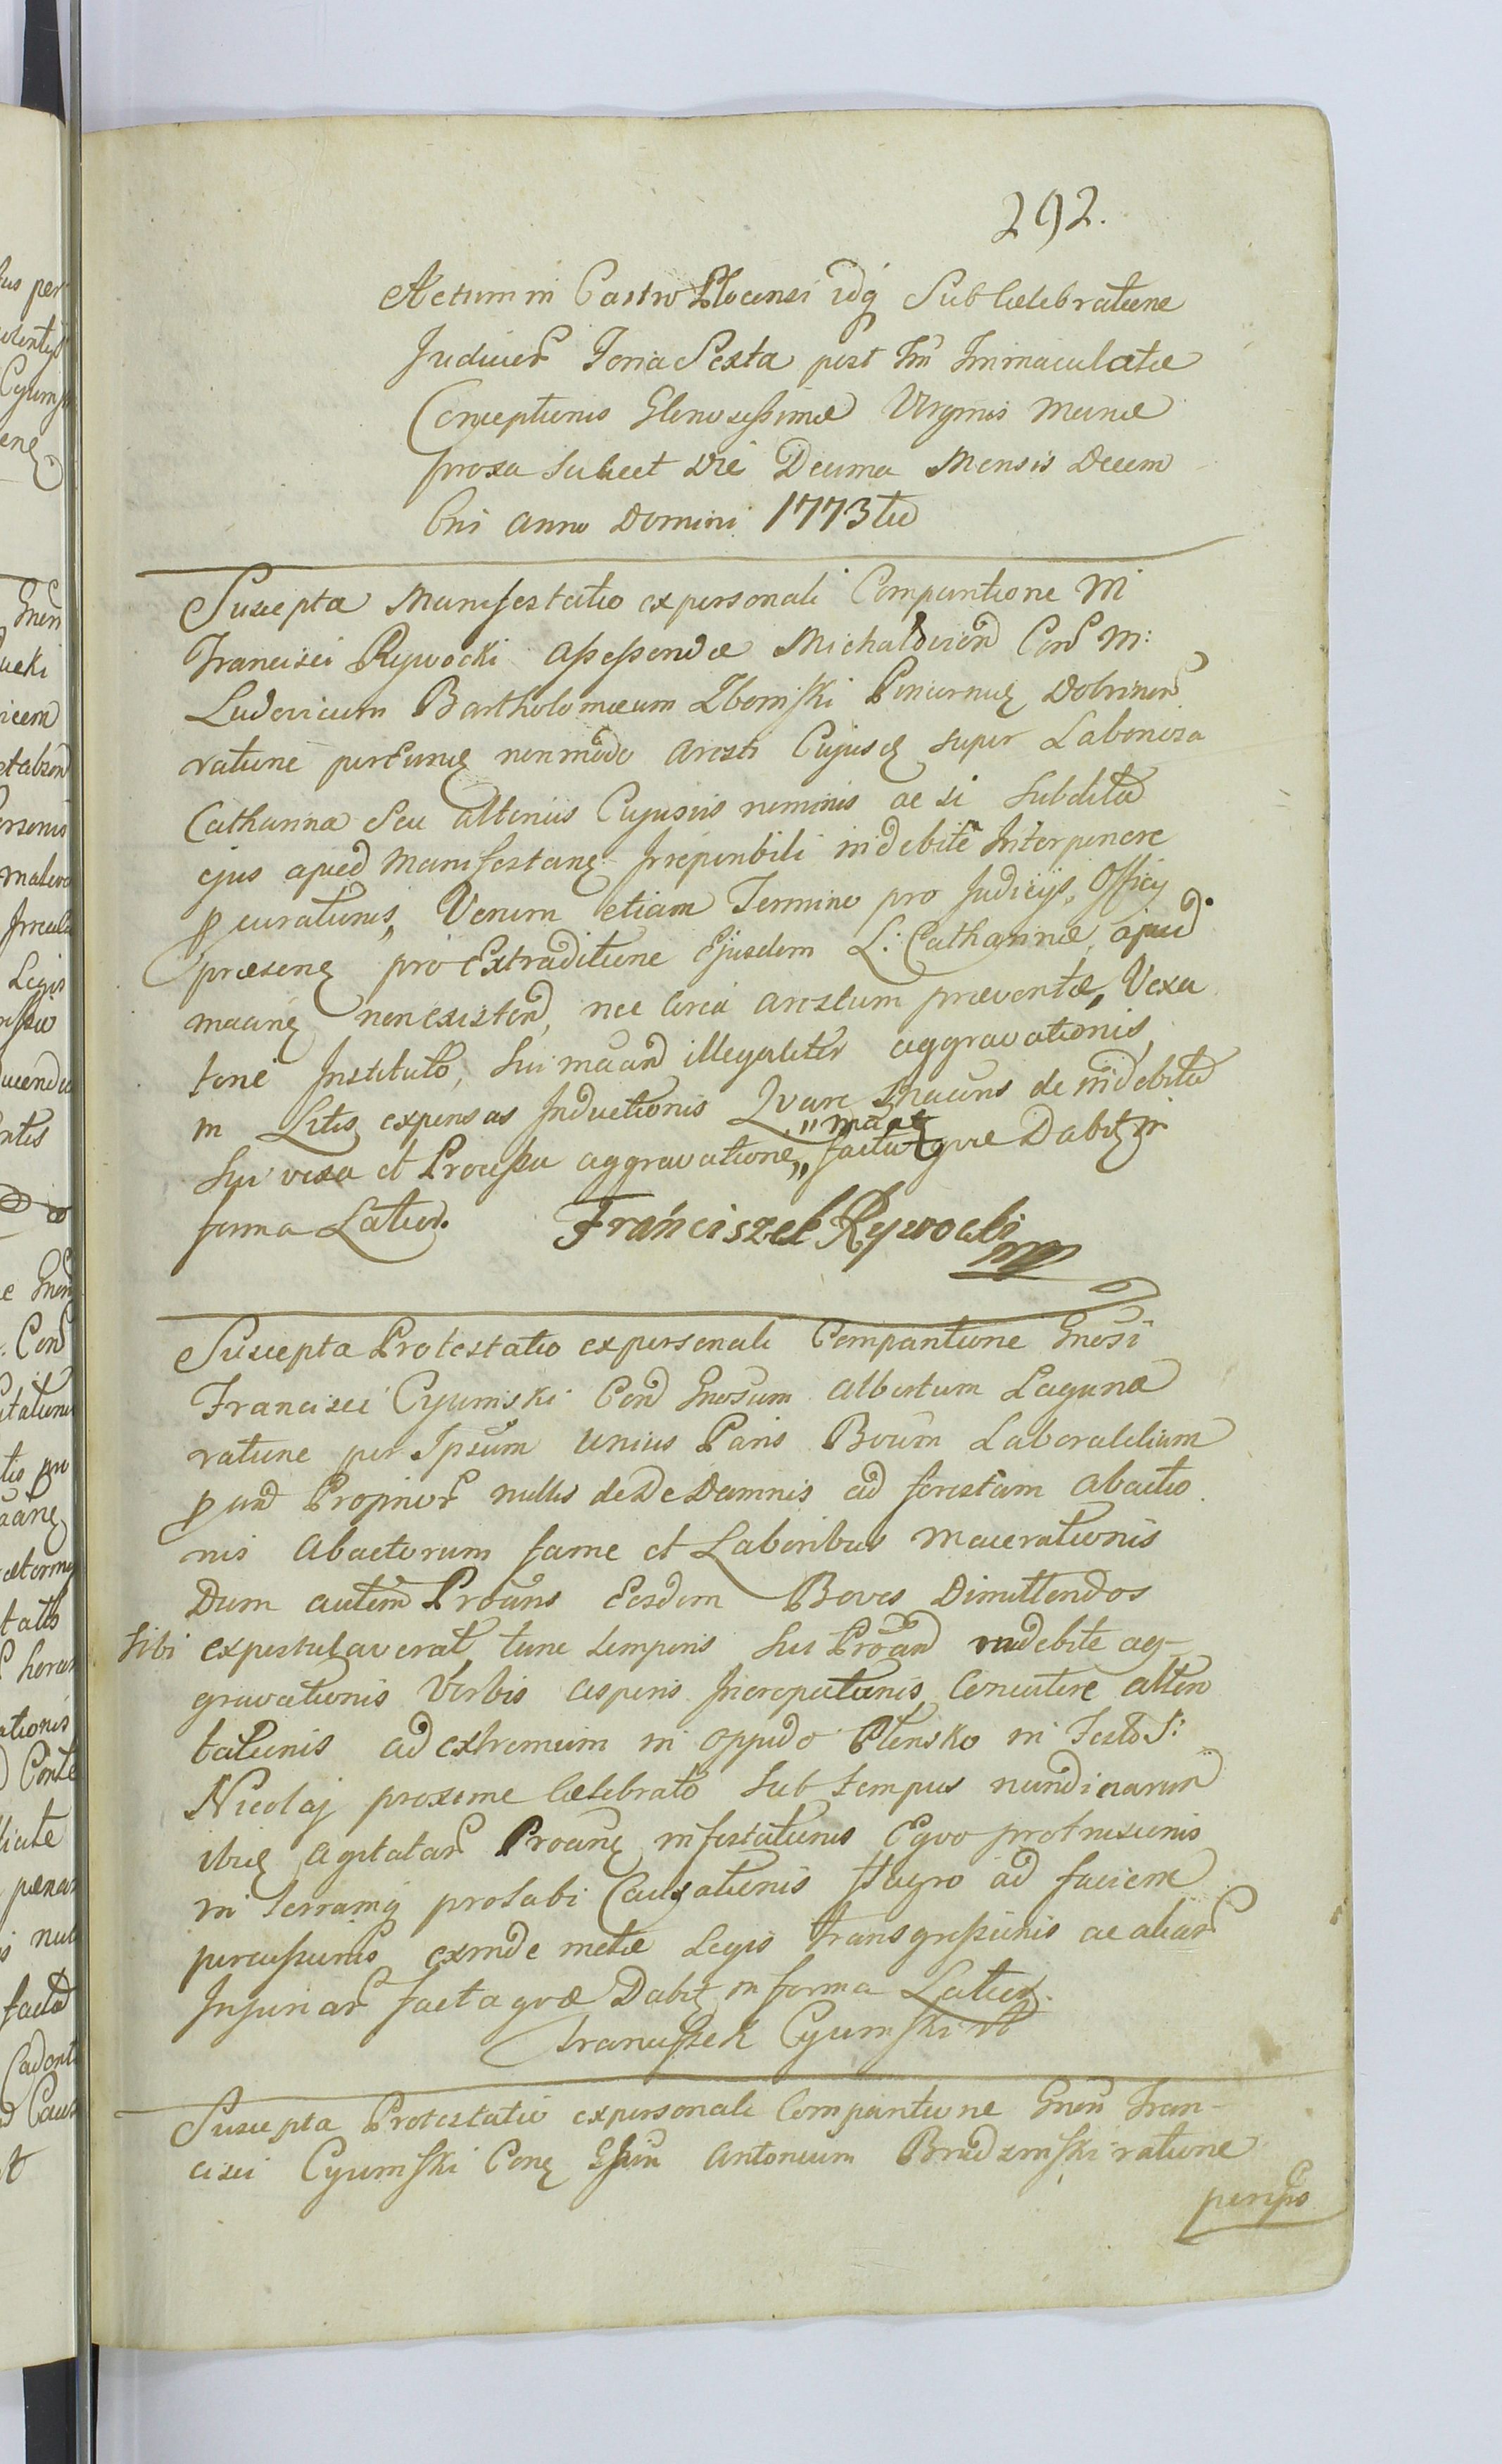 292.
Actum in Castro Plocensi idq Sub Celebratione
Judicior Feria Sexta post Ftm Immaculatae
Conceptionis Gloriosissimae Virginis Mariae
proxa scilicet Die Decima Mensis Decem
bris Anno Domini 1773tio
Suscepta Manifestatio ex personali Comparitione M
Francisci Rywocki Assessendae Michaloviend Con M:
Ludovicum Bartholomaeum Zboinski Pincernae Dobrinen
ratione per Eunq non modo Aresti Cujusq super Laboriosa
Catharina Seu alterius Cujusvis nominis ac si Subdita
ejus apud Manifestanq Irreperibili indebite Interponere
pcurationis, Verum etiam Termino pro Judicijs, Officij
praesenq pro Extraditione Ejusdem L: Catharinae, apud
maanq non existend, nec circa arestum praeventae, Vexa
tone Instituto, Sui maand illegaliter aggravationis,
in Litis expensas Inductionis Quare Maans de indebita
"maae
Sui vexa et Processu aggravatione, factaqvae Dabit in
forma Latior. Franciszek Rywocki
mp
Suscepta Protestatio ex personali Comparitione Gnosi
Francisci Cyumski Con Gnosum Albertum Laguna
ratione per Ipsum Unius Paris Boum Laboralium
p und Proprior nullis de De Damnis ad forestam abactio
nis Abactorum fame et Laboribus Macerationis
Dum autem Proans Eosdem Boves Dimittendos
sibi expostulaverat, tunc temporis Sui Proand indebite ag-
gravationis Verbis asperis Increpationis Concutere atten
tationis ad extremum in oppido Plonsko in Festo S:
Nicolaj proxime Celebrato Sub tempus nundinarum
ibiq Agitatar Proanq infestationis Eqvo protrusionis
in terramq prolabi Causationis flagro ad faciem
percussionis exinde metae Legis transgressionis ac aliar
Injuriar facta qvae Dabit in forma Latior.
Franciszek Cyumski
Suscepta Protestatio ex personali Comparitione Gnen Fran-
cisci Cyumski Conq Gsum Antonium Brudzinski ratione
per ipso